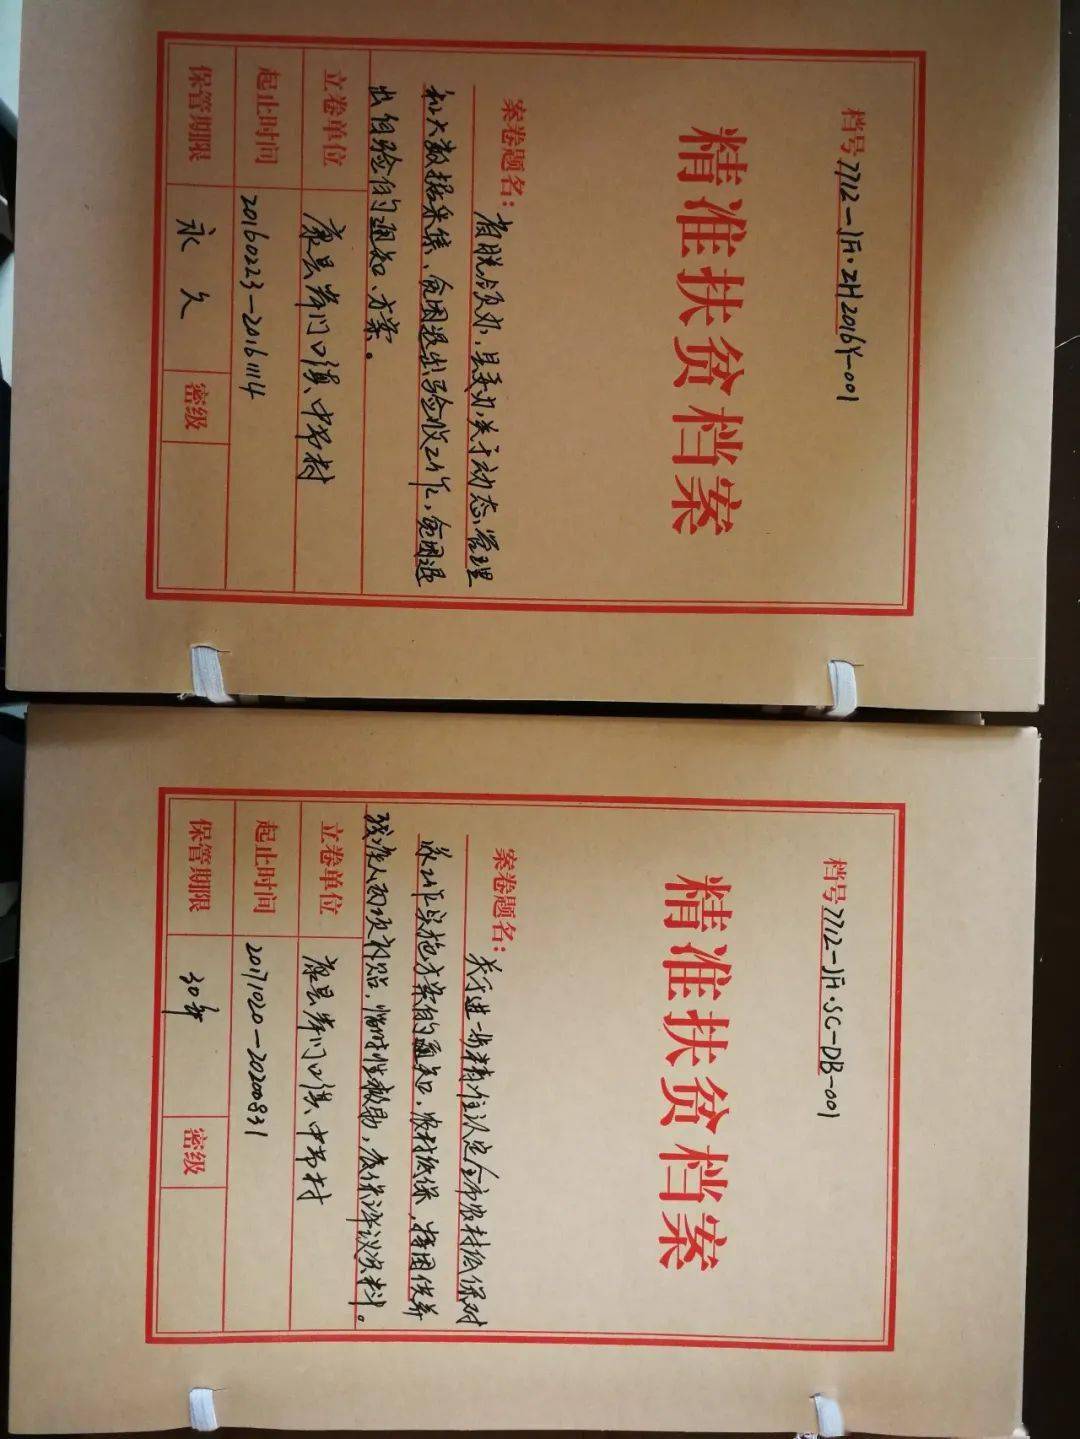 档号7712-JF·ZH2016Y-001
精准扶贫档案
案卷题名：省脱领办、县委办关于动态管理
和大数据采集、贫困退出验收工作，贫困退
出组验的通知、方案。
立卷单位 康县岸门口镇中节村
起止时间 20160223—20161114
保管期限 永久 密级
档号7712-JF·SC-DB-001
精准扶贫档案
案卷题名：关于进一步精准认定全市农村低保对
象工作实施方案的通知，农村低保，特困供养
残疾人两项补贴，临时性救助，低保评议资料。
立卷单位 康县岸门口镇中节村
起止时间 20171020—20200831
保管期限 30年 密级